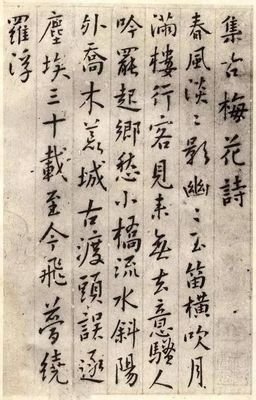 集古梅花詩
春風淡〻影幽〻玉笛橫吹月
滿樓行客見來無去意騷人
吟罷起鄉愁小橋流水斜陽
外喬木荒城古渡頭誤逐
塵埃三十載至今飛夢繞
羅浮